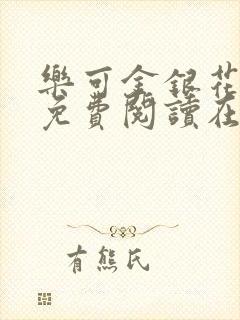 樂可金銀花
免費閱讀在
有熊氏